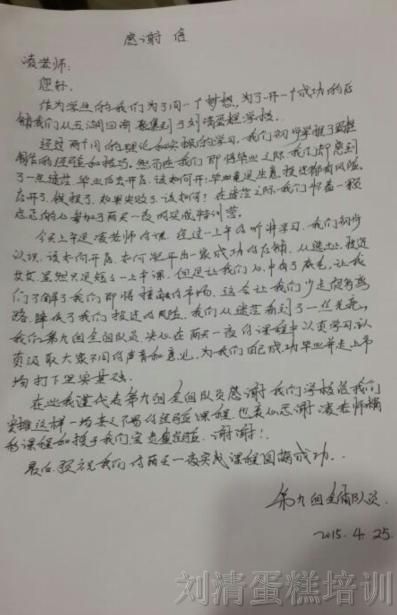 感谢信
凌老师:
您好.
作为学生的我们为了同一个梦想,为了开一个成功的店
铺我们从五湖四海聚集到了刘清蛋糕学校。
经过两个月的理论和实操的学习,我们初步掌握了蛋糕
制作的经验和技巧。然而在我们即将毕业之际,我们却感到
了一点迷茫,毕业后去开店,该如何开;毕竟是做生意,投资都有风险,
店开了,钱投了,如果失败了该如何?在迷茫之际,我们怀着一颗
忐忑的心参加了两天一夜的实战特训营。
今天上午是凌老师的课,在这一上午的听讲学习,我们初步
认识,该如何开店,如何把开出一家成功的店铺,从选址,投资
虽然只是短短一上午课,但是让我们心中有了底气,让我
们了解了我们即将接触的市场,这会让我们少走很多弯
路,降低了我们投资的风险,我们从迷茫看到了一丝光亮,
我们第九组全组队员决心在两天一夜的课程中认真学习,认
真汲取大家不同的声音和意见,为我们自己成功毕业并走上市
场打下坚实基础。
在此我谨代表第九组全组队员感谢我们学校给我们
安排这样一场受人不易的经验课程,也衷心感谢凌老师精
彩课程和授予我们宝贵经验,谢谢!
最后预祝我们的两天一夜实战课程圆满成功..
第九组全体队员
2015.4.25
刘清蛋糕培训